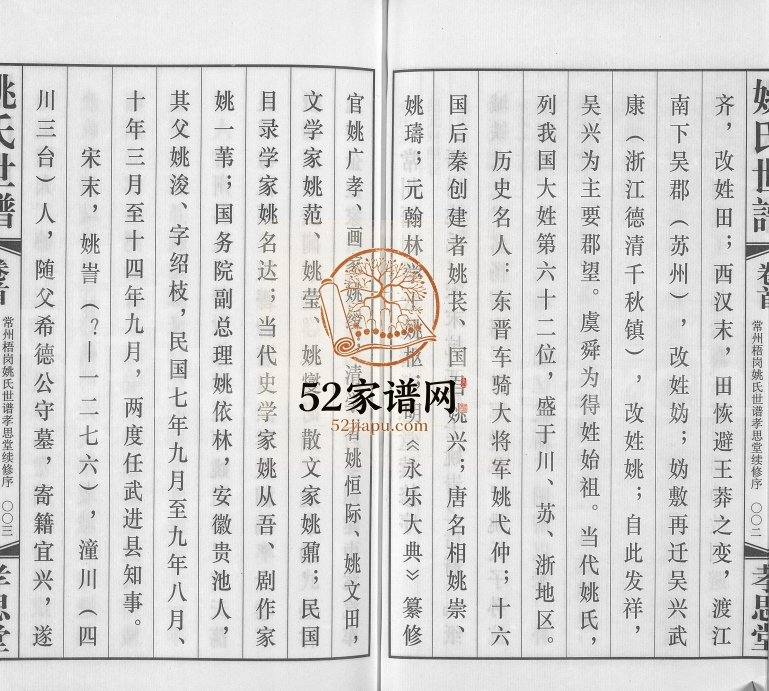 姚氏世谱
卷首
常州梧岗姚氏世谱孝思堂续修序
〇〇二
孝思堂
齐，改姓田；西汉末，田恢避王莽之变，渡江
南下吴郡（苏州），改姓妫；妫敷再迁吴兴武
康（浙江德清千秋镇），改姓姚；自此发祥，
吴兴为主要郡望。虞舜为得姓始祖。当代姚氏，
列我国大姓第六十二位，盛于川、苏、浙地区。
历史名人：东晋车骑大将军姚弋仲；十六
国后秦创建者姚苌、国君姚兴；唐名相姚崇、
姚璹；元翰林学士姚枢；明《永乐大典》纂修
官姚广孝、画家姚绶；清学者姚恒际、姚文田，
文学家姚范、姚莹、姚燮，散文家姚鼐；民国
目录学家姚名达；当代史学家姚从吾、剧作家
姚一苇；国务院副总理姚依林，安徽贵池人，
其父姚浚、字绍枝，民国七年九月至九年八月、
十年三月至十四年九月，两度任武进县知事。
宋末，姚訔（？—一二七六），潼川（四
川三台）人，随父希德公守墓，寄籍宜兴，遂
姚氏世谱
卷首
常州梧岗姚氏世谱孝思堂续修序
〇〇三
孝思堂
52家谱网
52jiapu.com